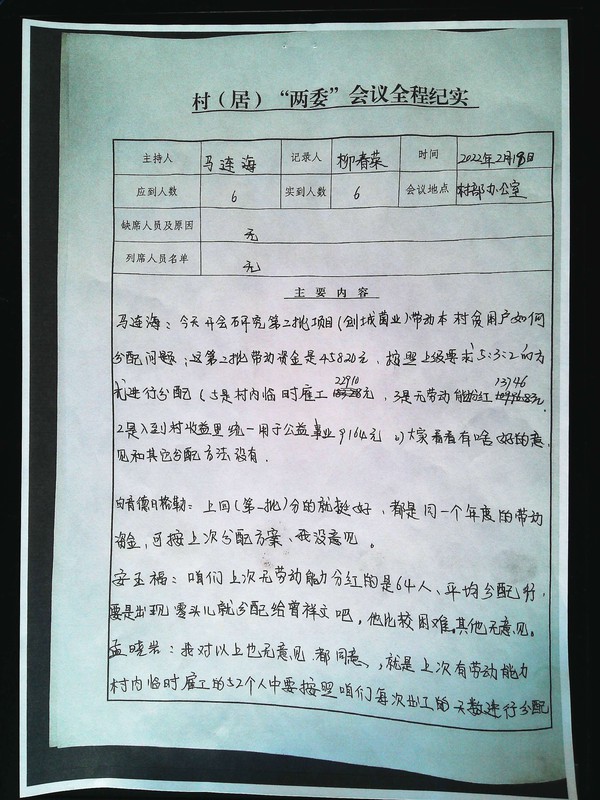 村（居）“两委”会议全程纪实
主持人 马连海 记录人 柳春荣 时间 2022年2月18日
应到人数 6 实到人数 6 会议地点 村部办公室
缺席人员及原因 无
列席人员名单 无
主要内容
马连海：今天开会研究第2批项目(创城菌业)带动本村贫困户如何
分配问题；这第2批带动资金是45820元，按照上级要求5:3:2的方
式进行分配（5是村内临时雇工22910元，3是无劳动能力分红13746元，
2是入到村收益里统一用于公益事业9164元。）大家看看有啥好的意
见和其它分配方法没有.
白音德日格勒：上回(第一批)分的就挺好，都是同一个年度的带动
资金，可按上次分配方案、我没意见。
安玉福：咱们上次无劳动能力分红的是64人、平均分配行，
要是出现零头儿就分配给曾祥文吧，他比较困难。其他无意见。
孟晓岩：我对以上也无意见.都同意，就是上次有劳动能力
村内临时雇工的52个人中要按照咱们每次出工的天数进行分配